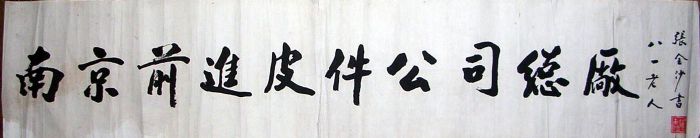 南京前進皮件公司總廠
張金沙書
八一老人